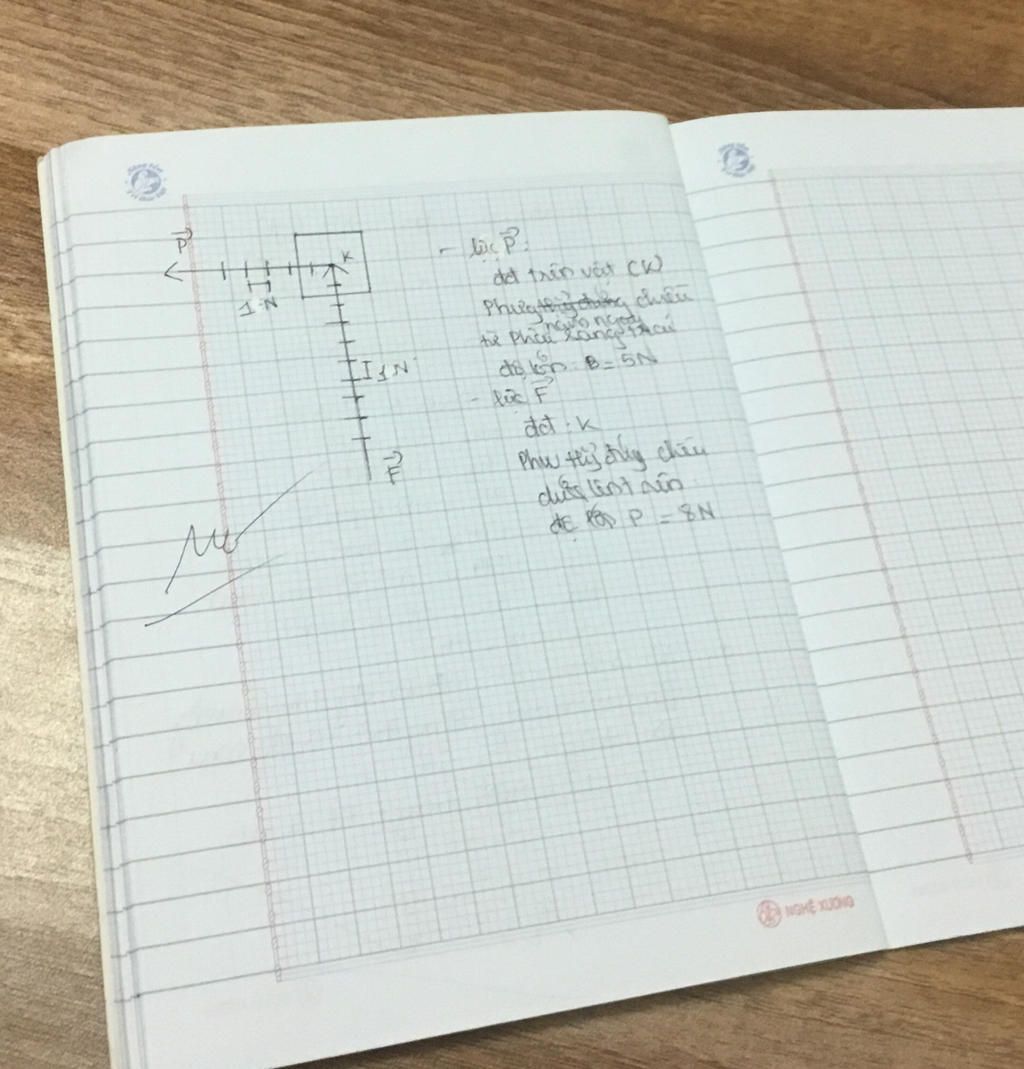 P
K
1 N
1 N
F
- lực P:
đđ trên vật (K)
Phương thẳng đứng chiều
nằm ngang
từ Phải sang trái
độ lớn: = 5N
- lực F
đđ: K
Phư chiều
dưới lên trên
độ lớn P = 8N
NGHỆ XƯƠNG